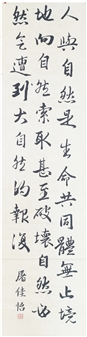 人與自然是生命共同體無止境
地向自然索取甚至破壞自然必
然会遭到大自然的報復
佳怡